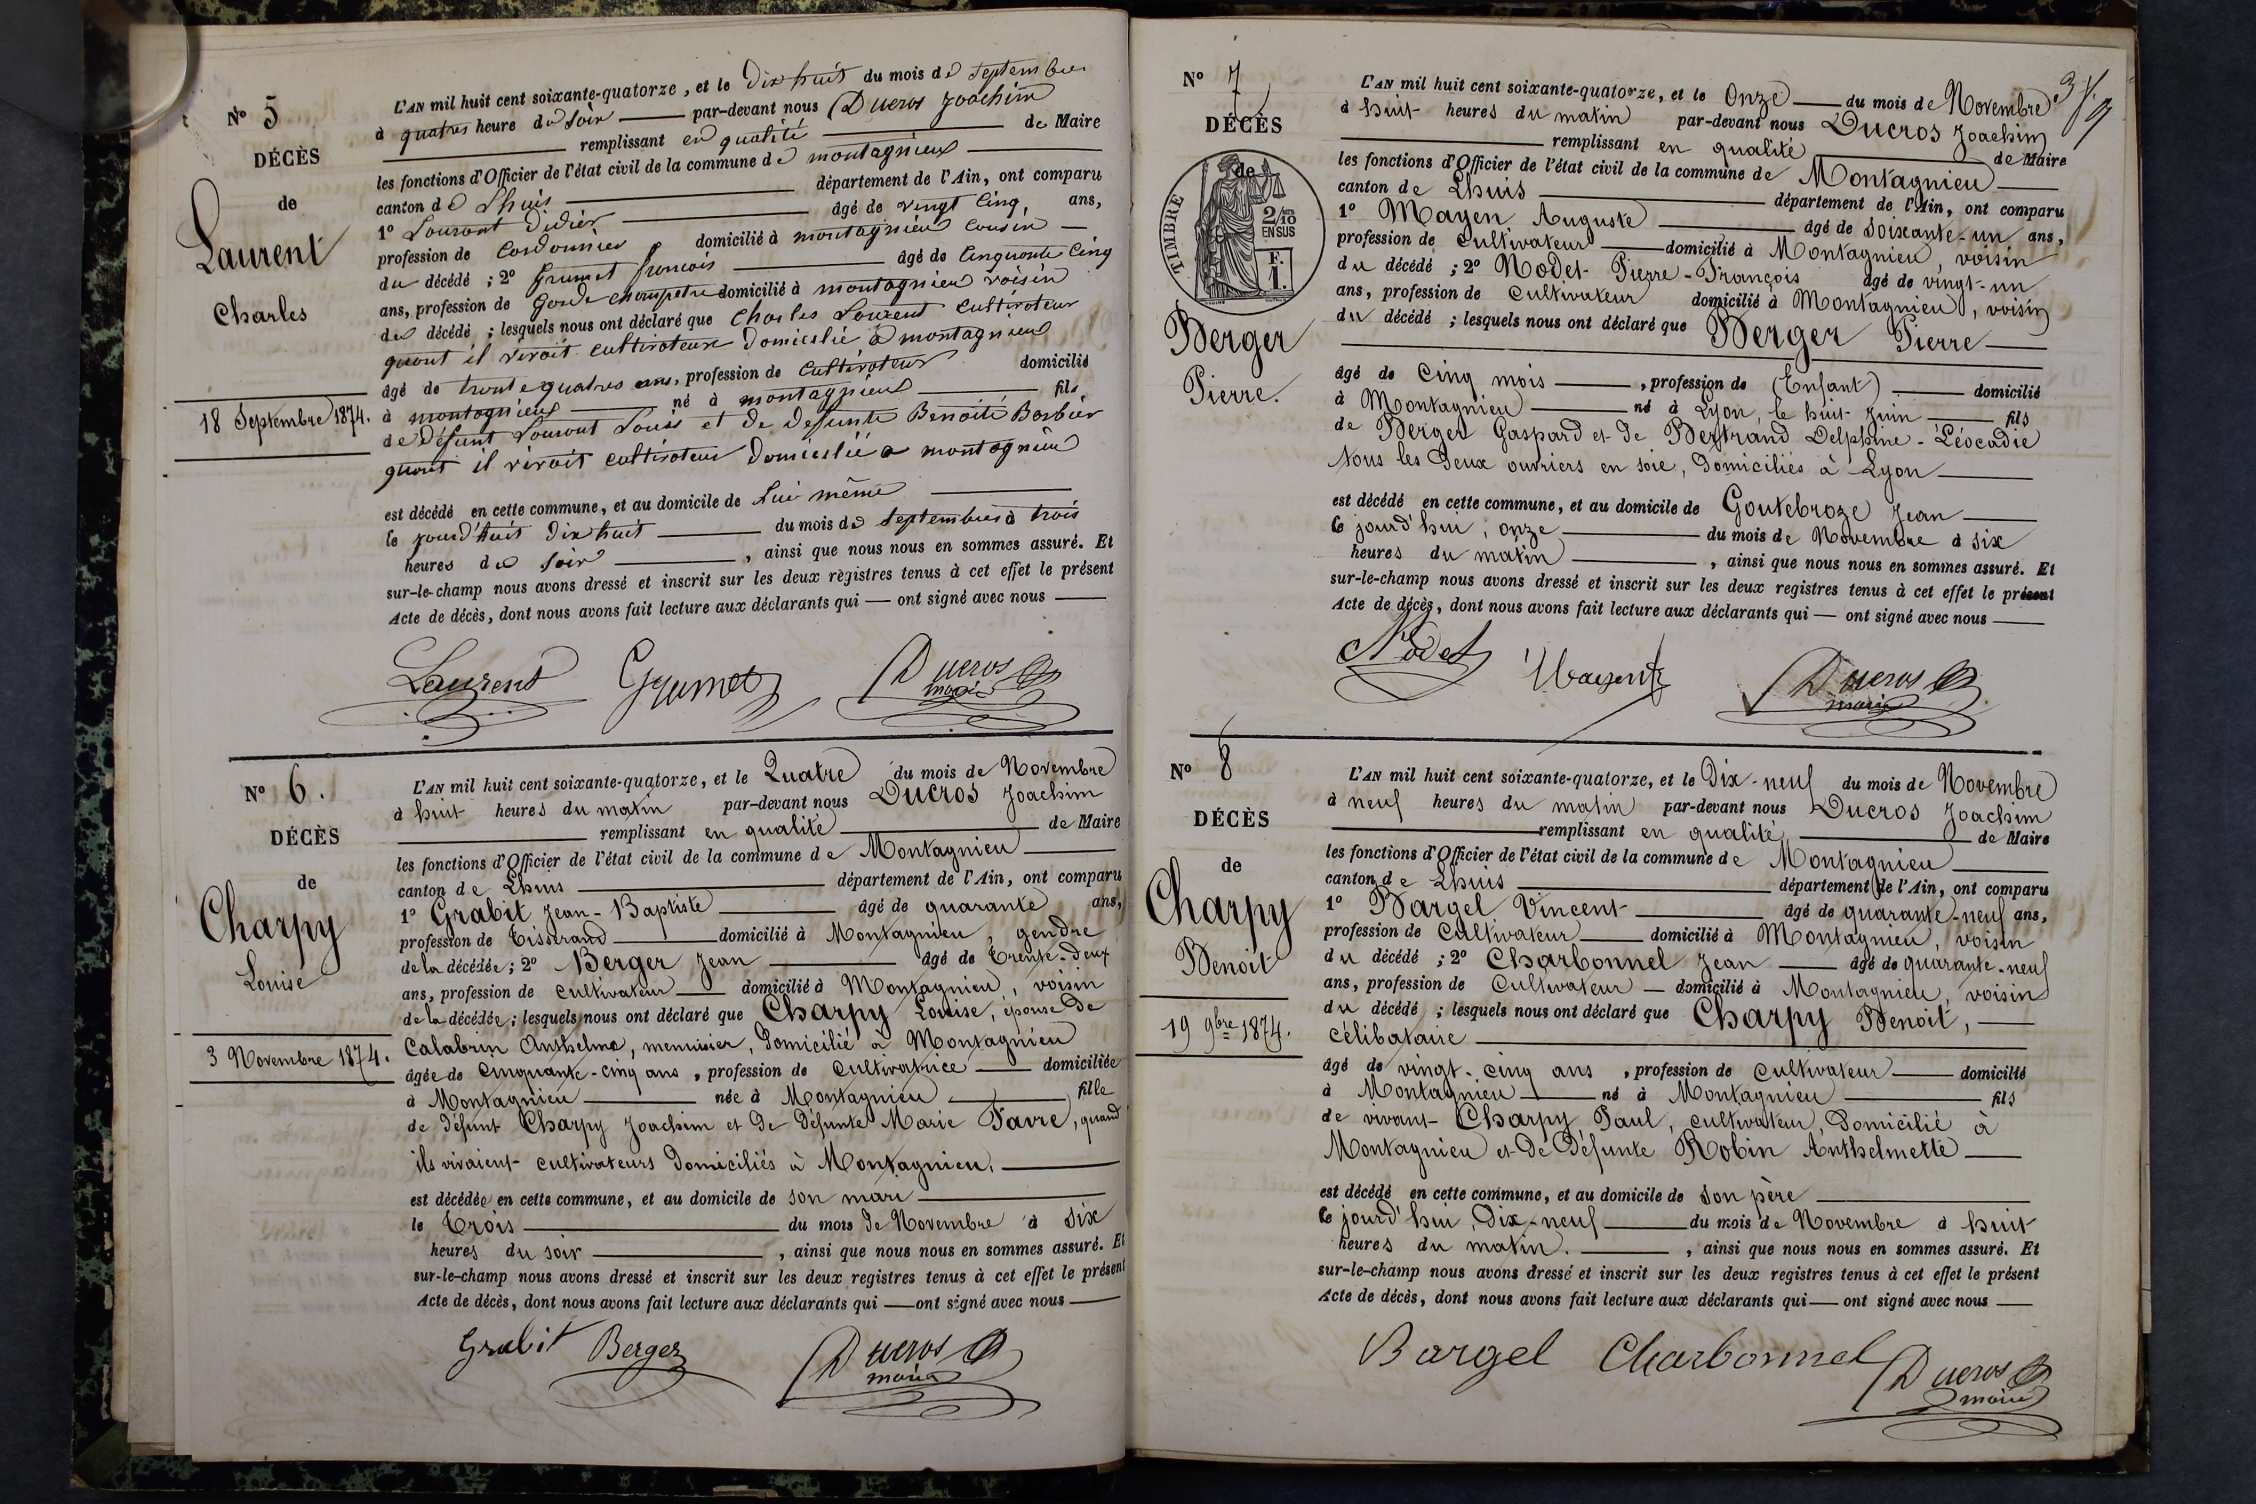 N° 5
DÉCÈS
de
Laurent
Charles
18 Septembre 1874.
L'AN mil huit cent soixante-quatorze, et le Dix huit du mois de Septembre
à quatres heure du Soir par-devant nous Ducros Joachim
remplissant en qualité de Maire
les fonctions d'Officier de l'état civil de la commune de montagnieu
canton de Lhuis département de l'Ain, ont comparu
1° Laurant Didier âgé de vingt Cinq, ans,
profession de Cordonnier domicilié à montagnieu Cousin
du décédé ; 2° Grumet francois âgé de Cinquante Cinq
ans, profession de Garde Champetre domicilié à montagnieu voisin
du décédé ; lesquels nous ont déclaré que Charles Laurent Cultivateur
quant il vivait cultivateur Domicilié a montagnieu
âgé de trente quatres ans, profession de Cultivateur domicilié
à montagnieu né à montagnieu fils
de Défunt Laurant Louis et de defunte Benoite Barbier
quant il vivait cultivateur Domicilié a montagnieu
est décédé en cette commune, et au domicile de Lui même
le jourd'huit Dix huit du mois de Septembres à trois
heures du Soir , ainsi que nous nous en sommes assuré. Et
sur-le-champ nous avons dressé et inscrit sur les deux règistres tenus à cet effet le présent
Acte de décès, dont nous avons fait lecture aux déclarants qui — ont signé avec nous
Laurent Grumet Ducros
maire
N° 6.
DÉCÈS
de
Charpy
Louise
3 Novembre 1874.
L'AN mil huit cent soixante-quatorze, et le Quatre du mois de Novembre
à huit heures du matin par-devant nous Ducros Joachim
remplissant en qualité de Maire
les fonctions d'Officier de l'état civil de la commune de Montagnieu
canton de Lhuis département de l'Ain, ont comparu
1° Grabit Jean-Baptiste âgé de quarante ans,
profession de Tisserand domicilié à Montagnieu, gendre
de la décédée ; 2° Berger Jean âgé de Trente-deux
ans, profession de cultivateur domicilié à Montagnieu, voisin
de la décédée ; lesquels nous ont déclaré que Charpy Louise, épouse de
Calabrin Anthelme, menuisier, Domicilié à Montagnieu
âgée de Cinquante-cinq ans, profession de Cultivatrice domiciliée
à Montagnieu née à Montagnieu fille
de défunt Charpy Joachim et de défunte Marie Favre, quand
ils vivaient cultivateurs Domiciliés à Montagnieu.
est décédée en cette commune, et au domicile de son mari
le Trois du mois de Novembre à Six
heures du soir , ainsi que nous nous en sommes assuré. Et
sur-le-champ nous avons dressé et inscrit sur les deux registres tenus à cet effet le présent
Acte de décès, dont nous avons fait lecture aux déclarants qui — ont signé avec nous
Grabit Berger Ducros
maire
N° 7
DÉCÈS
de
TIMBRE
2/10
EN SUS
F.
1.
Berger
Pierre.
L'AN mil huit cent soixante-quatorze, et le Onze du mois de Novembre
à huit heures du matin par-devant nous Ducros Joachim
remplissant en qualité de Maire
les fonctions d'Officier de l'état civil de la commune de Montagnieu
canton de Lhuis département de l'Ain, ont comparu
1° Mayen Auguste âgé de Soixante-un ans,
profession de Cultivateur domicilié à Montagnieu, voisin
du décédé ; 2° Nodet Pierre-François âgé de vingt-un
ans, profession de Cultivateur domicilié à Montagnieu, voisin
du décédé ; lesquels nous ont déclaré que Berger Pierre
âgé de Cinq mois , profession de (Enfant) domicilié
à Montagnieu né à Lyon, le huit Juin fils
de Berger Gaspard et de Bertrand Delphine-Léocadie
Tous les deux ouvriers en soie, Domiciliés à Lyon
est décédé en cette commune, et au domicile de Goutebroze Jean
Ce jourd'hui, onze du mois de Novembre à six
heures du matin , ainsi que nous nous en sommes assuré. Et
sur-le-champ nous avons dressé et inscrit sur les deux registres tenus à cet effet le présent
Acte de décès, dont nous avons fait lecture aux déclarants qui — ont signé avec nous
Nodet Mayent Ducros
maire
N° 8
DÉCÈS
de
Charpy
Benoit
19 9bre 1874.
L'AN mil huit cent soixante-quatorze, et le Dix-neuf du mois de Novembre
à neuf heures du matin par-devant nous Ducros Joachim
remplissant en qualité de Maire
les fonctions d'Officier de l'état civil de la commune de Montagnieu
canton de Lhuis département de l'Ain, ont comparu
1° Bargel Vincent âgé de quarante-neuf ans,
profession de Cultivateur domicilié à Montagnieu, voisin
du décédé ; 2° Charbonnel Jean âgé de quarante-neuf
ans, profession de Cultivateur domicilié à Montagnieu, voisin
du décédé ; lesquels nous ont déclaré que Charpy Benoit,
célibataire
âgé de vingt-cinq ans , profession de cultivateur domicilié
à Montagnieu né à Montagnieu fils
de vivant Charpy Paul, cultivateur, Domicilié à
Montagnieu et de Défunte Robin Anthelmette
est décédé en cette commune, et au domicile de son père
Ce jourd'hui, Dix-neuf du mois de Novembre à huit
heures du matin. , ainsi que nous nous en sommes assuré. Et
sur-le-champ nous avons dressé et inscrit sur les deux registres tenus à cet effet le présent
Acte de décès, dont nous avons fait lecture aux déclarants qui — ont signé avec nous
Bargel Charbonnel Ducros
maire